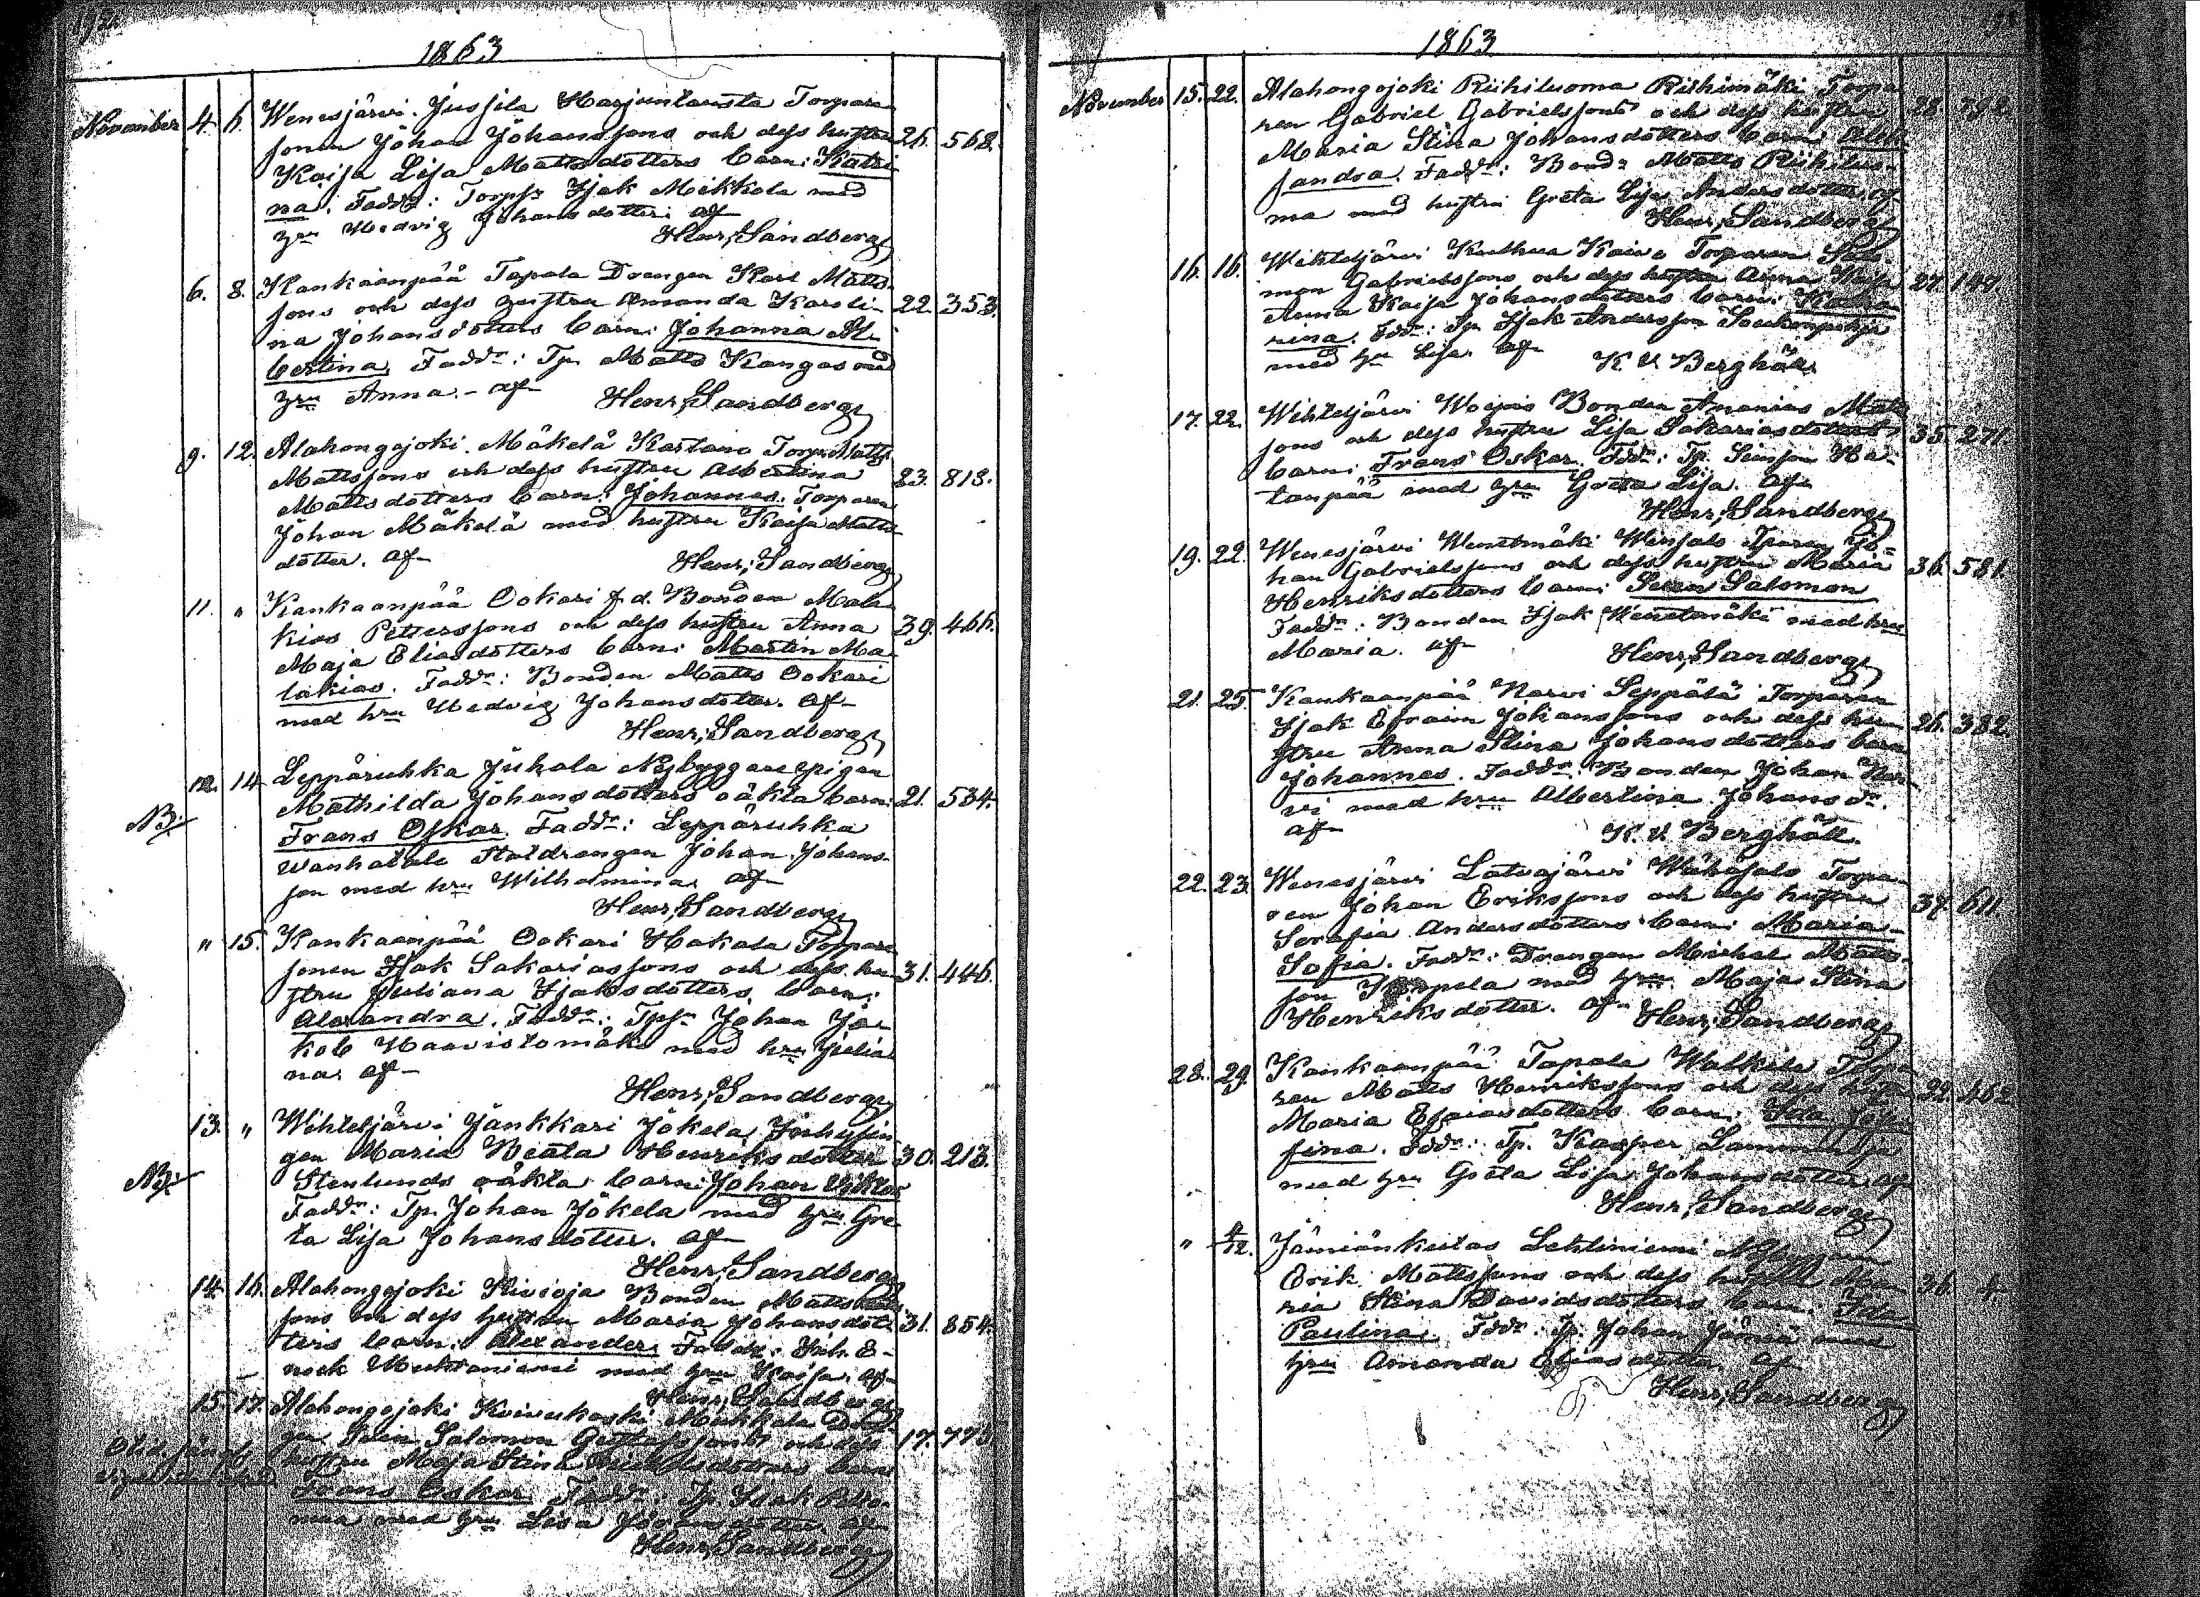 1863
November 4. 6. Wenesjärvi Jussila Harjuntausta Torpare
sonen Johan Johanssons och dess hustru 26. 568.
Kaisa Lisa Mattsdotters barn: Katri
na. Faddr: Torpsn Isak Mikkola med
hru Hedvig Johansdotter. af
Henr. Sandberg
6. 8. Kankaanpää Tapala Drengen Karl Matts
sons och dess hustru Amanda Karoli- 22. 353.
na Johansdotters barn: Johanna Al-
bertina. Faddr: Tp. Matts Kangas med
hru Anna. - af
Henr. Sandberg
9. 12. Alahongojoki Mäkelä Torp. Matts
Mattssons och dess hustru Albertina 23. 813.
Mattsdotters barn: Johannes. Torparen
Johan Mäkelä med hustru Kaisa Matts
dotter. af
Henr. Sandberg
11. " Kankaanpää Ookari f.d. Bonden Mala-
kias Petterssons och dess hustru Anna 39. 466.
Maja Eliasdotters barn: Martin Ma-
lakias. Faddr: Bonden Matts Ookari
med hru Hedvig Johansdotter. af
Henr. Sandberg
12. 14. Leppäruhka Juhala Nybyggarepigan
Mathilda Johansdotters oäkta barn: 21. 534.
NB.
Frans Oskar. Faddr: Leppäruhka
Wanhatalo Statdrengen Johan Johans-
son med hru Wilhelmina. af
Henr. Sandberg
" 15. Kankaanpää Ookari Hakala Torpare
sonen Isak Sakariassons och dess hu- 31. 446.
stru Juliana Isaksdotters barn:
Alexandra. Faddr: Tpsn Johan Ja-
kob Haavistomäki med hru Julia
na. af
Henr. Sandberg
13. " Wihteljärvi Jänkkäri Jokela Inhysin
gen Maria Beata Henriksdotter 30. 213.
NB.
Stenlunds oäkta barn: Johan Viktor
Faddr: Tp. Johan Jokela med hru Gre-
ta Lisa Johansdotter. af
Henr. Sandberg
14. 16. Alahongojoki Kivioja Bonden Matts
sons och dess hustru Maria Johansdot- 31. 854.
ters barn: Alexander. Faddr: E-
nock med hru Kaisa. af
Henr. Sandberg
15. 17. Alahongojoki Koivukoski Mukkala Dren
gen Sven Salomon Gustafssons och dess 17. 773.
hustru Maja Stina barn
Frans Oskar. Faddr: Tp. Isak
maa med hru Lisa af
Henr. Sandberg
1863
November 15. 22. Alahongojoki Riihiluoma Riihimäki Torpa
ren Gabriel Gabrielssons och dess hustru 28. 792.
Maria Stina Johansdotters barn: Alek-
sandra. Faddr: Bond. Matts Riihiluo-
ma med hustru Greta Lisa Andersdotter. af
Henr. Sandberg
16. 16. Wihteljärvi Kaivo Torparen Salo
mon Gabrielssons och dess hustru Anna Kaisa 27. 149.
Anna Kaisa Johansdotters barn: Katha
rina. Fddr: Tp. Isak Andersson
med hru Lisa. af
K. V. Berghäll
17. 22. Wihteljärvi Woipio Bonden Ananias Matts
sons och dess hustru Lisa Sakariasdotters 35. 271.
barn: Frans Oskar. Fddr: Tp. Simson Ha-
tanpää med hru Greta Lisa. af
Henr. Sandberg
19. 22. Wenesjärvi Wenetmäki Torparen Jo-
han Gabrielssons och dess hustru Maria 36. 581.
Henriksdotters barn: Sven Salomon
Faddr: Bonden Isak Wenetmäki med hru
Maria. af
Henr. Sandberg
21. 25. Kankaanpää Narvi Seppälä Torparen
Isak Efraim Johanssons och dess hu- 26. 382.
stru Anna Stina Johansdotters barn
Johannes. Faddr: Bonden Johan Nar-
vi med hru Albertina Johansdr.
af
K. V. Berghäll.
22. 23. Wenesjärvi Latvajärvi Wähäsalo Torpa
ren Johan Erikssons och dess hustru 37. 611.
Serafia Andersdotters barn: Maria
Sofia. Faddr: Drengen Michel Matts-
son med hru Maja Stina
Henriksdotter. af
Henr. Sandberg
28. 29. Kankaanpää Tapala Walkila Torpa
ren Matts Henrikssons och dess hustru 32. 362.
Maria Esaiasdotters barn: Ida Jose-
fina. Fddr: Tp. Kasper
med hru Greta Lisa Johansdotter. af
Henr. Sandberg
" 4/12. Jämiänkeidas Lehtiniemi Nybyggaren
Erik Mattssons och dess hustru Ma- 36. 4.
ria Stina Davidsdotters barn: Ida
Paulina. Fddr: Tp. Johan Jämiä med
hru Amanda Eliasdotter. af
Henr. Sandberg